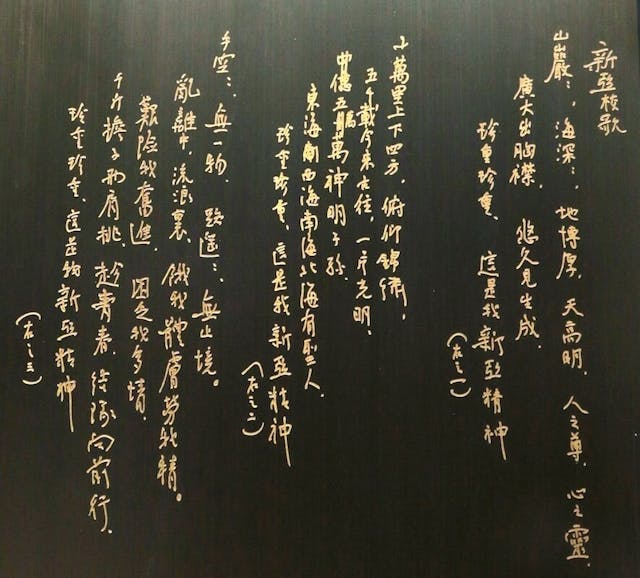 新亞校歌
山巖:,海深:,地博厚,天高明,人之尊,心之靈,
廣大出胸襟,悠久見生成.
珍重珍重,這是我新亞精神
(右之一)
十萬里上下四方,俯仰錦繡,
五千載今來古往,一片光明.
萬神明子孫.
東海西海南海北海有聖人.
珍重珍重,這是我新亞精神
(右之二)
手空:,無一物,路遙:,無止境。
亂離中,流浪裏,餓我體膚勞我精。
艱險我奮進,困乏我多情.
千斤擔子兩肩挑,趁青春,結隊向前行.
珍重珍重,這是我新亞精神
(右之三)